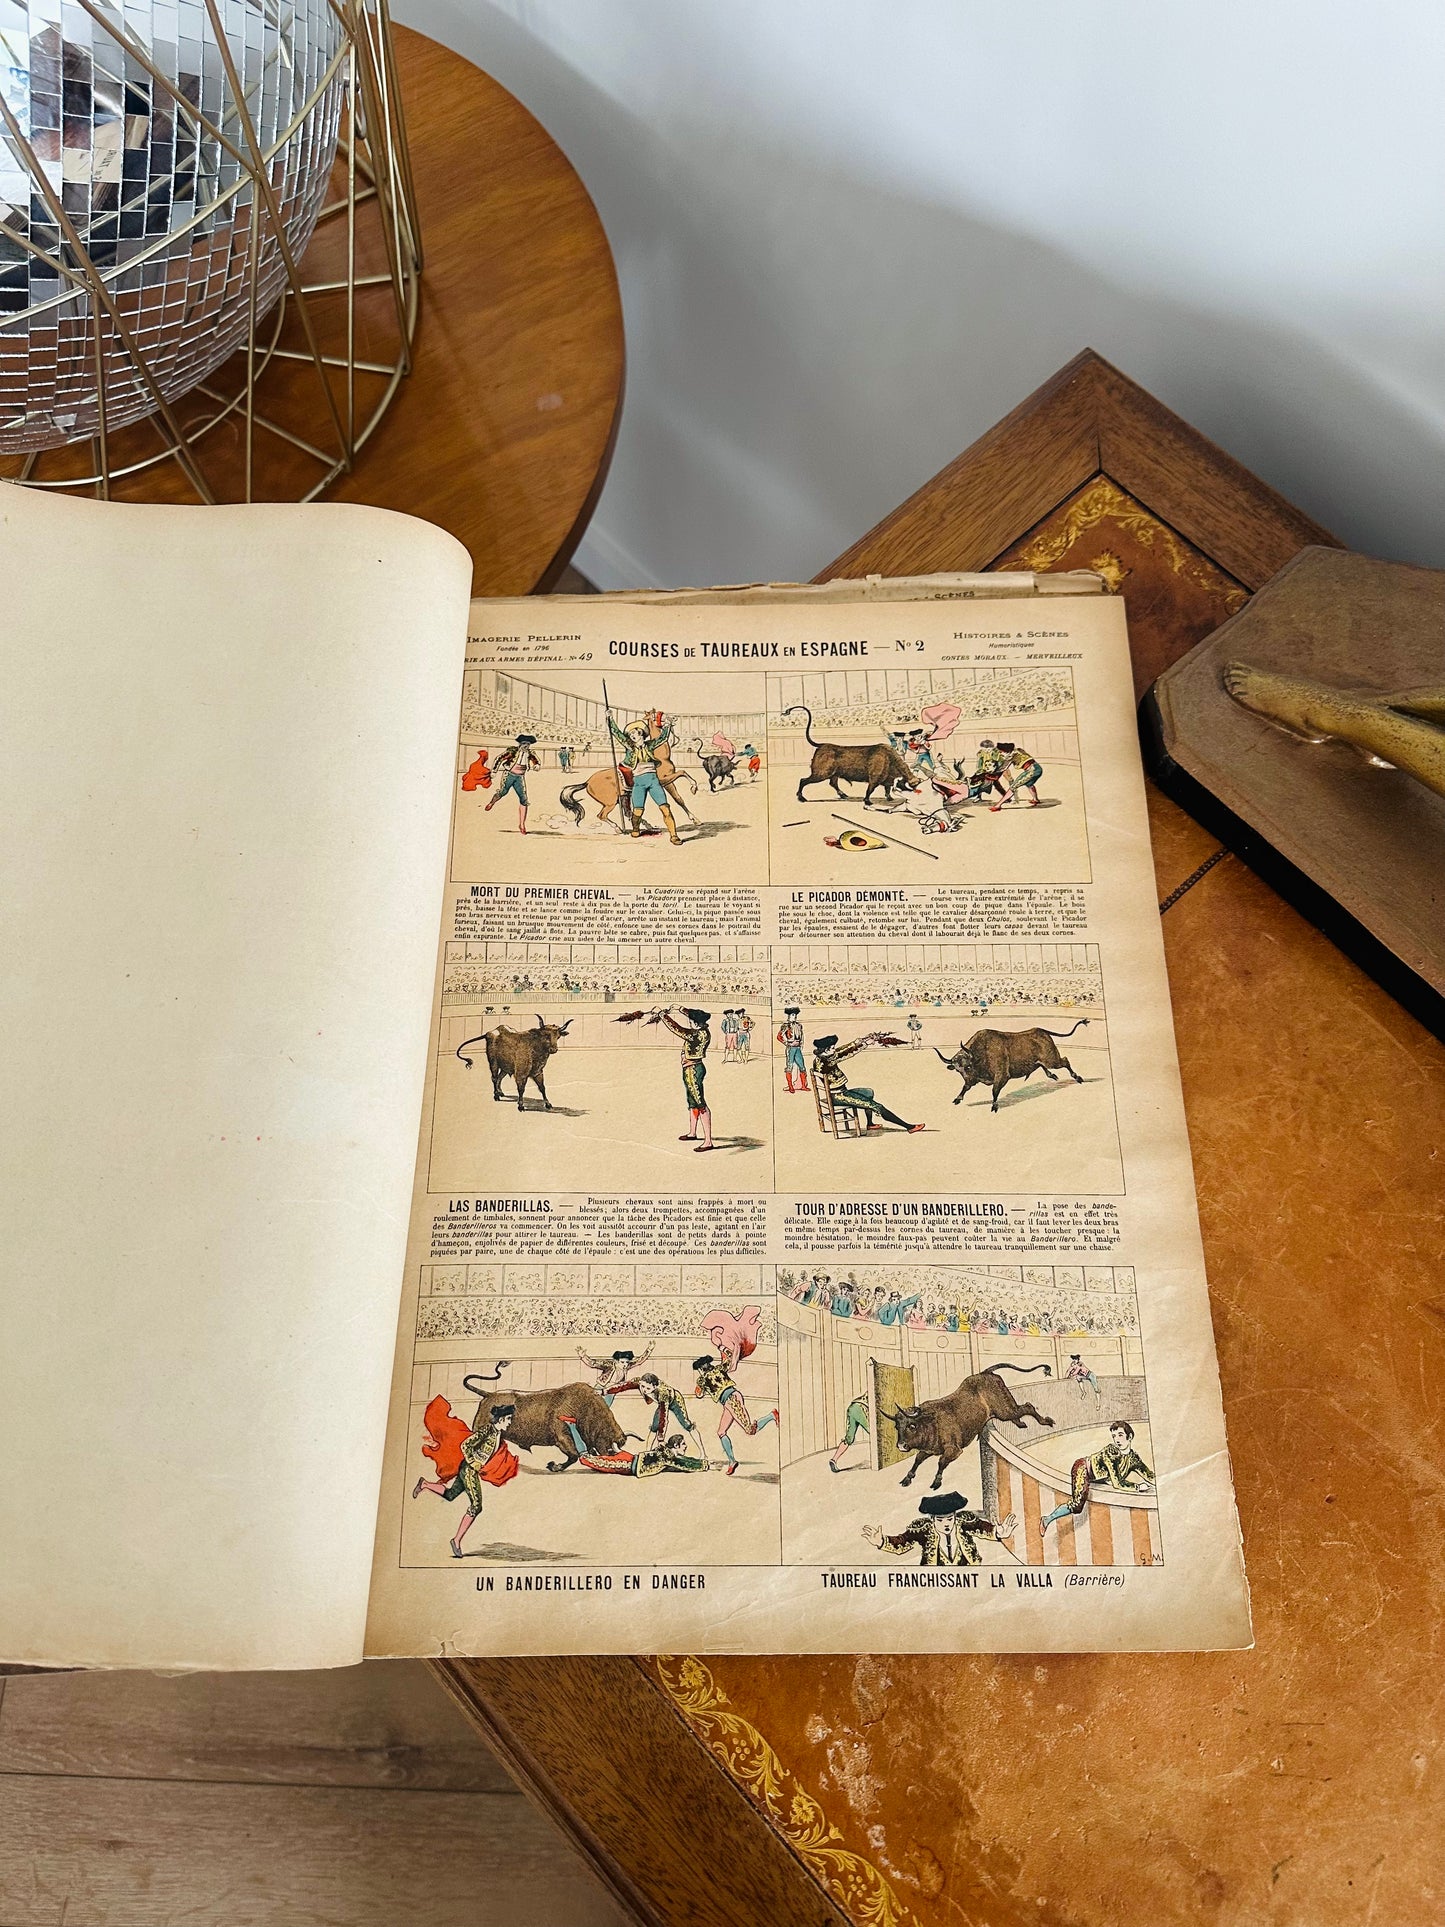 Scènes
Imagerie Pellerin
Fondée en 1796
RIE AUX ARMES D'ÉPINAL - No 49
COURSES DE TAUREAUX EN ESPAGNE — No 2
Histoires & Scènes
Humoristiques
CONTES MORAUX. — MERVEILLEUX
MORT DU PREMIER CHEVAL. — La Cuadrilla se répand sur l'arène
les Picadors prennent place à distance,
près de la barrière, et un seul reste à dix pas de la porte du toril. Le taureau le voyant si
près, baisse la tête et se lance comme la foudre sur le cavalier. Celui-ci, la pique passée sous
son bras nerveux et retenue par un poignet d'acier, arrête un instant le taureau; mais l'animal
furieux, faisant un brusque mouvement de côté, enfonce une de ses cornes dans le poitrail du
cheval, d'où le sang jaillit à flots. La pauvre bête se cabre, puis fait quelques pas, et s'affaisse
enfin expirante. Le Picador crie aux aides de lui amener un autre cheval.
LE PICADOR DÉMONTÉ. — Le taureau, pendant ce temps, a repris sa
course vers l'autre extrémité de l'arène; il se
rue sur un second Picador qui le reçoit avec un bon coup de pique dans l'épaule. Le bois
plie sous le choc, dont la violence est telle que le cavalier désarçonné roule à terre, et que le
cheval, également culbuté, retombe sur lui. Pendant que deux Chulos, soulevant le Picador
par les épaules, essaient de le dégager, d'autres font flotter leurs capas devant le taureau
pour détourner son attention du cheval dont il labourait déjà le flanc de ses deux cornes.
LAS BANDERILLAS. — Plusieurs chevaux sont ainsi frappés à mort ou
blessés; alors deux trompettes, accompagnées d'un
roulement de timbales, sonnent pour annoncer que la tâche des Picadors est finie et que celle
des Banderilleros va commencer. On les voit aussitôt accourir d'un pas leste, agitant en l'air
leurs banderillas pour attirer le taureau. — Les banderillas sont de petits dards à pointe
d'hameçon, enjolivés de papier de différentes couleurs, frisé et découpé. Ces banderillas sont
piquées par paire, une de chaque côté de l'épaule : c'est une des opérations les plus difficiles.
TOUR D'ADRESSE D'UN BANDERILLERO. — La pose des bande-
rillas est en effet très
délicate. Elle exige à la fois beaucoup d'agilité et de sang-froid, car il faut lever les deux bras
en même temps par-dessus les cornes du taureau, de manière à les toucher presque : la
moindre hésitation, le moindre faux-pas peuvent coûter la vie au Banderillero. Et malgré
cela, il pousse parfois la témérité jusqu'à attendre le taureau tranquillement sur une chaise.
G. M.
UN BANDERILLERO EN DANGER
TAUREAU FRANCHISSANT LA VALLA (Barrière)